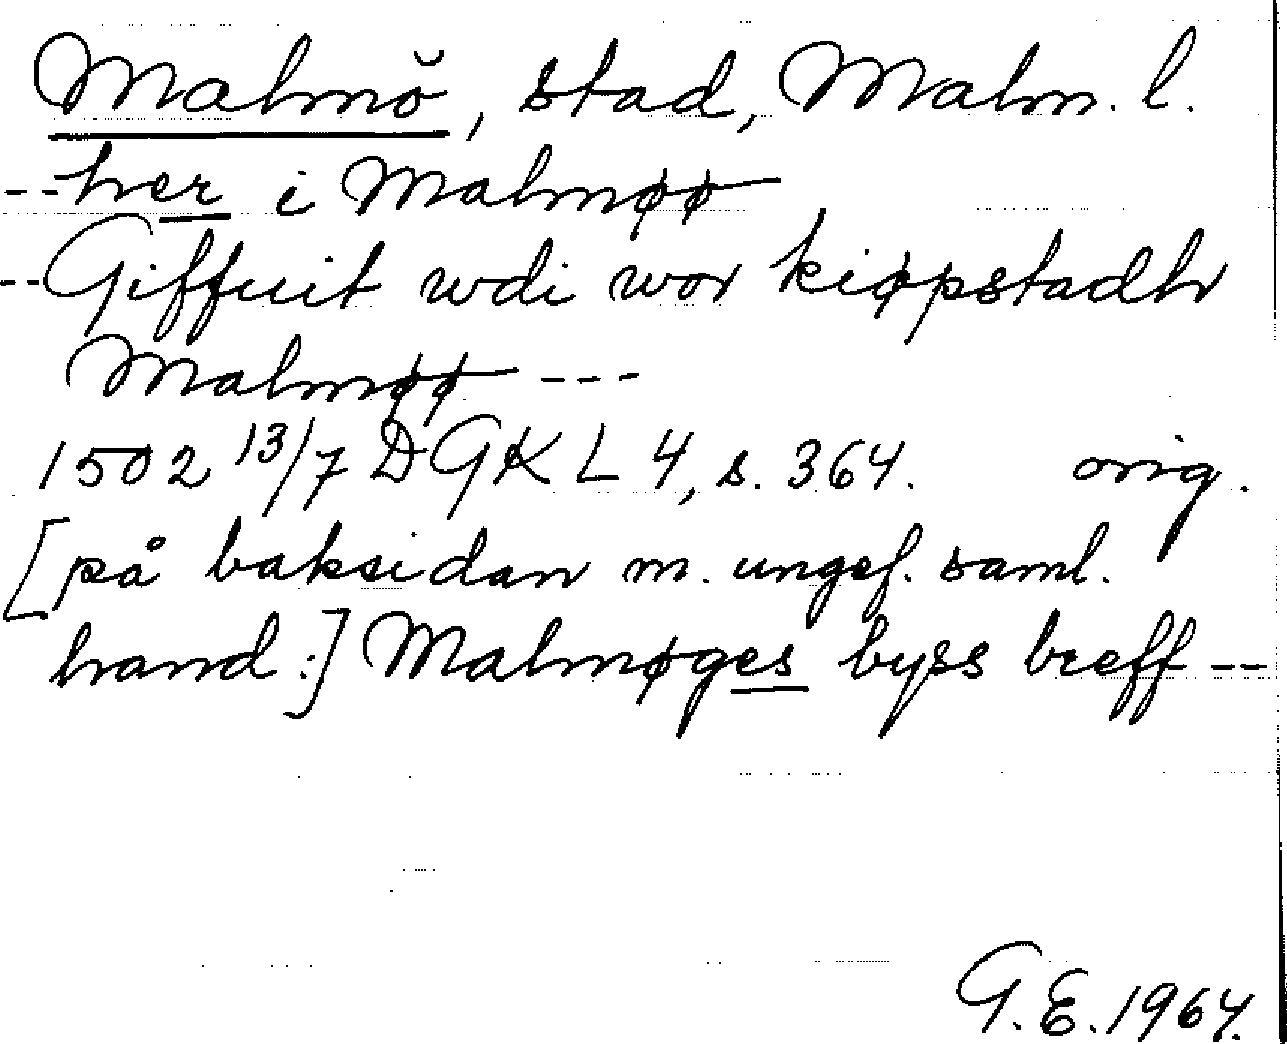 Malmö, stad, Malm. l.
--her i Malmøø
--Giffuit wdi wor kiøpstadh
Malmøø ---
1502 13/7 DGKL 4, s. 364. orig.
[på baksidan m. ungef. saml.
hand:] Malmøges byss breff --
G.E. 1964.